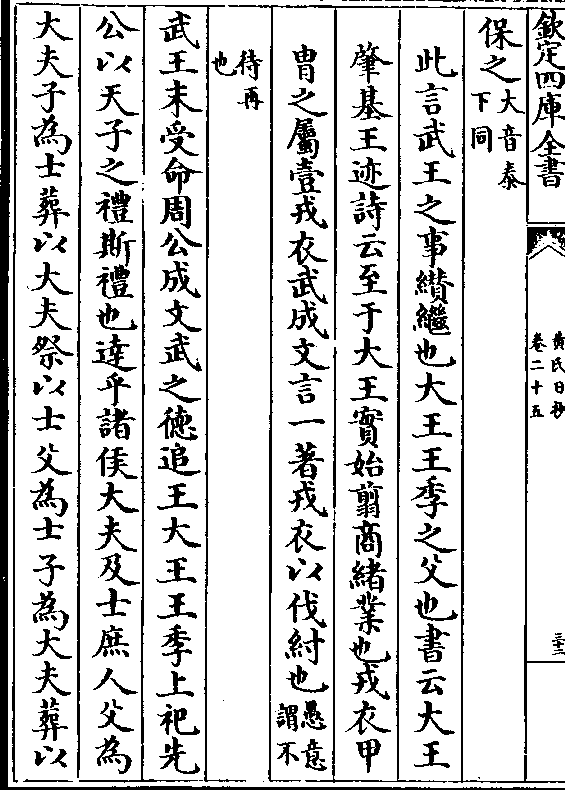 欽定四庫全書
黃氏日抄
卷二十五
三十三
保之大音泰
下同
此言武王之事纘繼也大王王季之父也書云大王
肇基王迹詩云至于大王實始翦商緒業也戎衣甲
冑之屬壹戎衣武成文言一著戎衣以伐紂也愚意
謂不
待再
也
武王末受命周公成文武之德追王大王王季上祀先
公以天子之禮斯禮也達乎諸侯大夫及士庶人父為
大夫子為士葬以大夫祭以士父為士子為大夫葬以